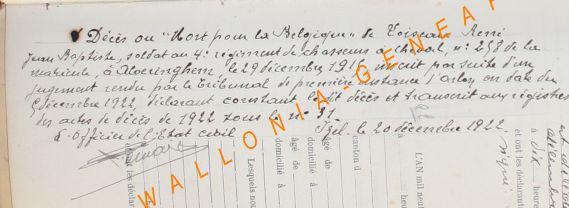 Décès ou "Mort pour la Belgique" de Toiseau René
Jean Baptiste, soldat au 4e régiment de chasseurs à cheval, n: 258 de la
matricule, à Hoeringhem, le 29 décembre 1916, inscrit par suite d'un
jugement rendu par le tribunal de première instance d'Arlon en date du
décembre 1922, déclarant constant le dit décès et transcrit aux registres
des actes de décès de 1922 sous le n: 31.
Izel, le 20 décembre 1922.
L'Officier de l'Etat civil
WALLONIA-GENEA
L'AN mil neuf
à heure
âgé de
domicilié à
âgé de
domicilié à
Lesquels nous
à dix heure
et ont les déclarants
signé